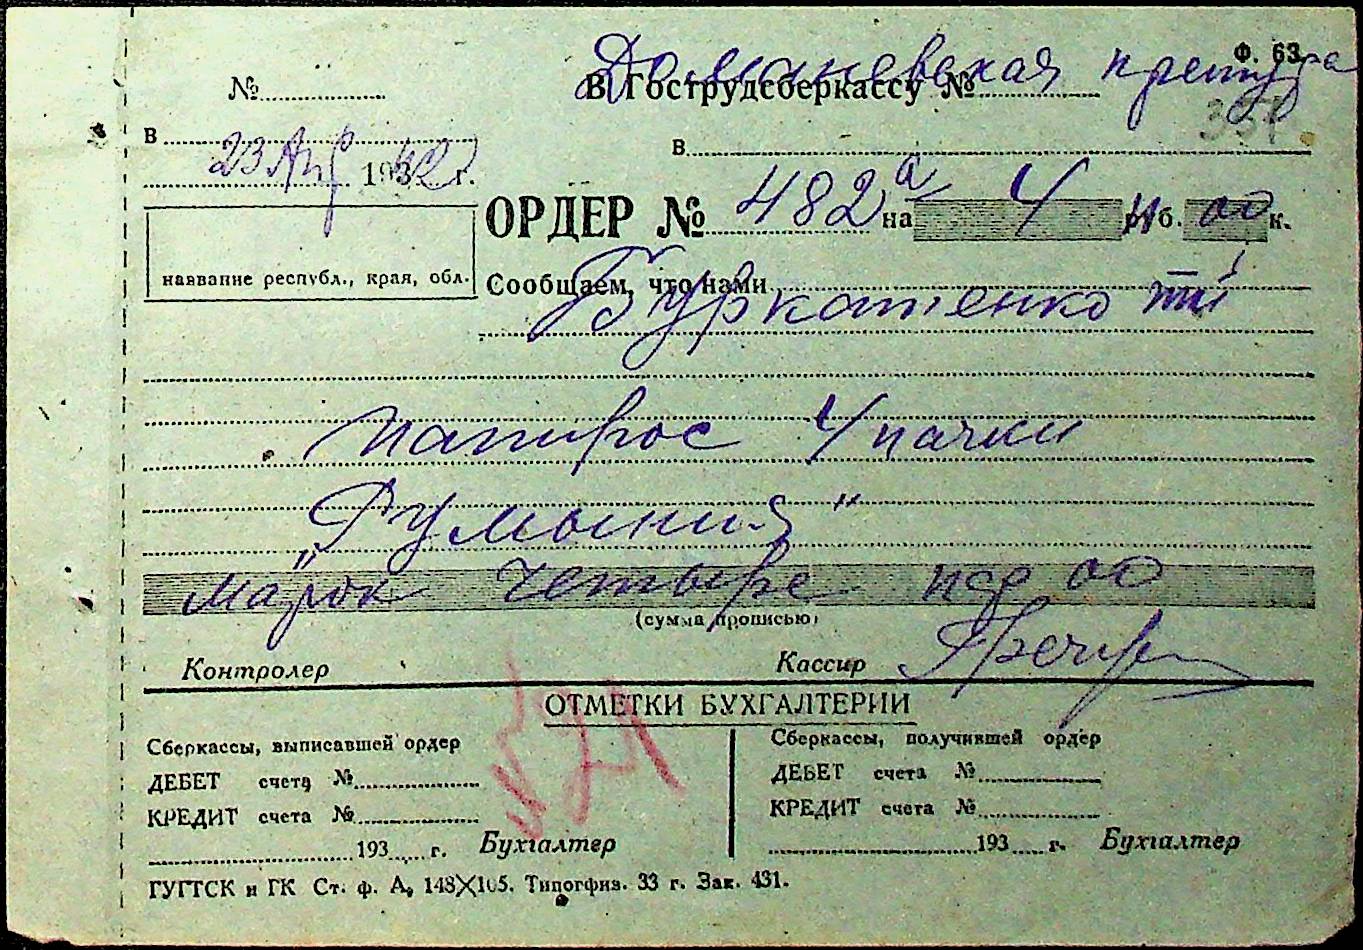 Ф. 63
№ В Гострудсберкассу №
Доманевская претура
351
в
в
23 Апр 1942 г.
ОРДЕР № 482а на 4 руб. 00 к.
название республ., края, обл.
Сообщаем, что нами
Буркатенко
папирос 4 пачки
„Румыния"
марок четыре пф 00
(сумма прописью)
Контролер Кассир
ОТМЕТКИ БУХГАЛТЕРИИ
Сберкассы, выписавшей ордер
ДЕБЕТ счета №
КРЕДИТ счета №
193 г. Бухгалтер
Сберкассы, получившей ордер
ДЕБЕТ счета №
КРЕДИТ счета №
193 г. Бухгалтер
ГУГТСК и ГК Ст. ф. А₆ 148×105. Типогфиз. 33 г. Зак. 431.